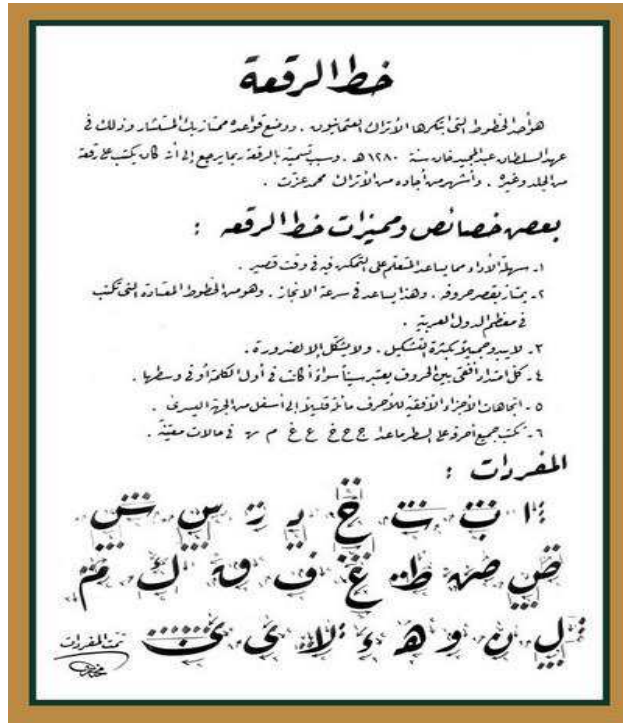 خط الرقعة
هو أحد الخطوط التى ابتكرها الأتراك العثمانيون . ووضع قواعده ممتاز بك المستشار وذلك فى
عهد السلطان عبد المجيد خان سنة ١٢٨٠ هـ . وسبب تسميته بالرقعة ربما يرجع إلى أنه كان يكتب على رقعة
من الجلد وغيره . وأشهر من أجاده من الأتراك محمد عزت .
بعض خصائص ومميزات خط الرقعه :
١- سهلة الأداء مما يساعد المتعلم على التمكن فيه فى وقت قصير .
٢- يمتاز بقصر حروفه . وهذا يساعد فى سرعة الانجاز . وهو من الخطوط المعتادة التى تكتب
فى معظم الدول العربية .
٣- لا يبدو جميلاً بكثرة التشكيل . ولا يشكّل إلا لضرورة .
٤- كل امتداد افقى بين الحروف يعتبر سيئاً سواءً أكانت فى أول الكلمة أو فى وسطها .
٥- اتجاهات الأجزاء الأفقية للأحرف مائلة قليلاً إلى أسفل من الجهة اليسرى .
٦- تكتب جميع أحرفه على السطر ما عدا ج ح خ ع غ م هـ فى حالات معيّنة .
المفردات :
ا ب ت ج د ر س ش
ض ص ط غ ف ق ك م
ل ن و هـ ء لا ى ئ
تمت المفردات